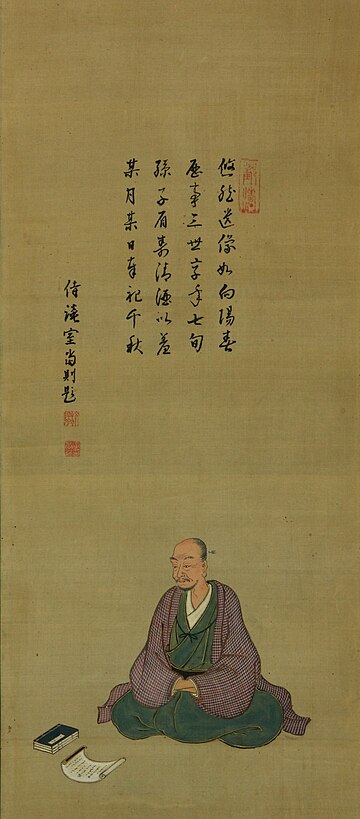 悠然遺像如向陽春
歴事三世享年七旬
孫子有壽清酒以羞
某月某日奉祀千秋
侍 室尚則題